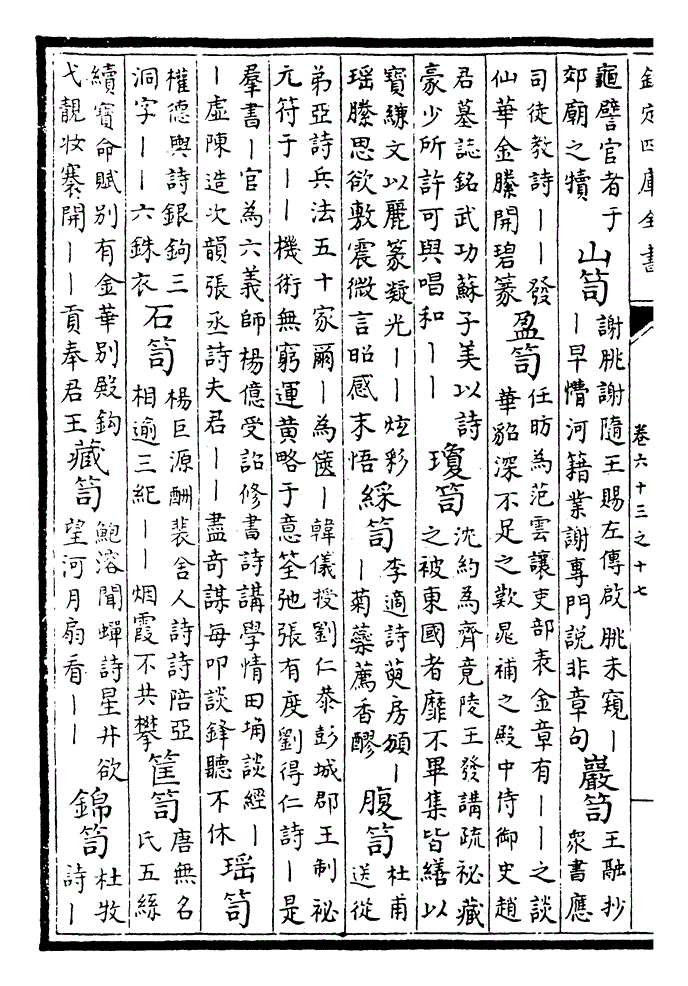 欽定四庫全書
卷六十三之十七
龜譬官者于
郊廟之犢
山笥
謝朓謝隨王賜左傳啟朓未窺丨
丨早懵河籍業謝專門説非章句
巖笥
王融抄
衆書應
司徒教詩丨丨發
仙華金縢開碧篆
盈笥
任昉為范雲讓吏部表金章有丨丨之談
華貂深不足之歎晁補之殿中侍御史趙
君墓誌銘武功蘇子美以詩
豪少所許可與唱和丨丨
瓊笥
沈約為齊竟陵王發講疏祕藏
之被東國者靡不畢集皆繕以
寳縑文以麗篆凝光丨丨炫彩
瑶縢思欲敷震微言昭感末悟
綵笥
李適詩萸房頒丨
丨菊蘂薦香醪
腹笥
杜甫
送從
弟亞詩兵法五十家爾丨為篋丨韓儀授劉仁恭彭城郡王制祕
元符于丨丨機術無窮運黄略于意筌弛張有度劉得仁詩丨是
羣書丨官為六義師楊億受詔修書詩講學情田埆談經丨
丨虚陳造次韻張丞詩夫君丨丨盡奇謀每叩談鋒聽不休
瑶笥
權德輿詩銀鉤三
洞字丨丨六銖衣
石笥
楊巨源酬裴舍人詩詩陪亞
相逾三紀丨丨烟霞不共攀
筐笥
唐無名
氏五絲
續寳命賦别有金華别殿鈎
弋靚妝褰開丨丨貢奉君王
藏笥
鮑溶聞蟬詩星井欲
望河月扇看丨丨
錦笥
杜牧
詩丨